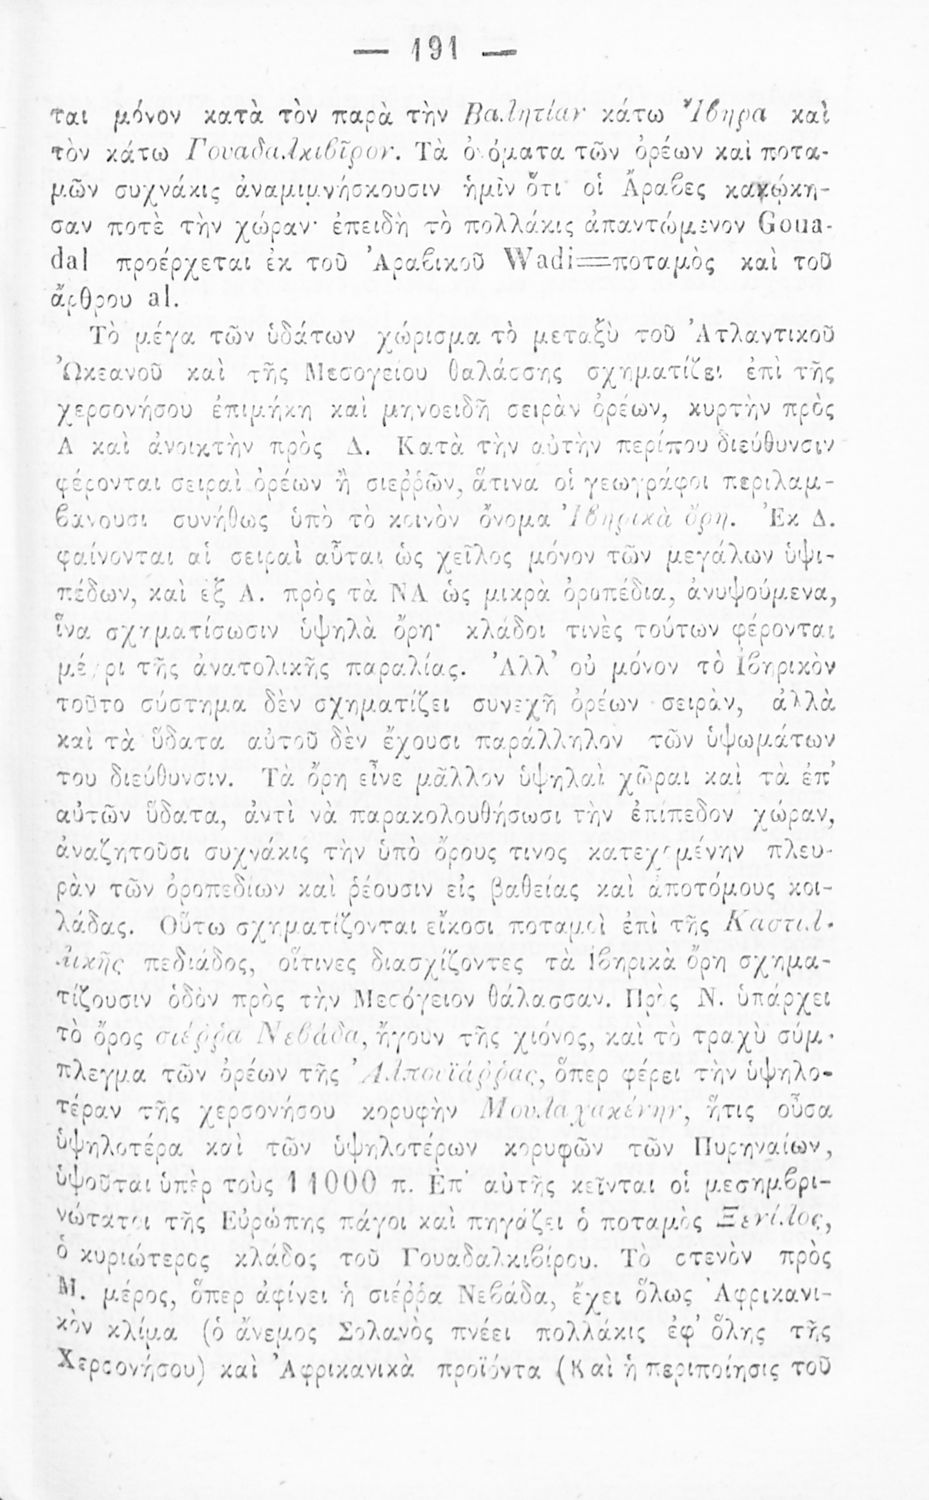 — 191 —
ται μόνον κατὰ τὸν παρὰ τὴν Βαλητίαν κάτω Ἴβηρα καὶ
τὸν κάτω Γουαδαλκιβῖρον. Τὰ ὀνόματα τῶν ὀρέων καὶ ποτα-
μῶν συχνάκις ἀναμιμνήσκουσιν ἡμῖν ὅτι οἱ Ἄραβες κατῴκη-
σαν ποτὲ τὴν χώραν· ἐπειδὴ τὸ πολλάκις ἀπαντώμενον Goua-
dal προέρχεται ἐκ τοῦ Ἀραβικοῦ Wadi=ποταμὸς καὶ τοῦ
ἄρθρου al.
Τὸ μέγα τῶν ὑδάτων χώρισμα τὸ μεταξὺ τοῦ Ἀτλαντικοῦ
Ὠκεανοῦ καὶ τῆς Μεσογείου θαλάσσης σχηματίζει ἐπὶ τῆς
χερσονήσου ἐπιμήκη καὶ μηνοειδῆ σειρὰν ὀρέων, κυρτὴν πρὸς
Α καὶ ἀνοικτὴν πρὸς Δ. Κατὰ τὴν αὐτὴν περίπου διεύθυνσιν
φέρονται σειραὶ ὀρέων ἢ σιεῤῥῶν, ἅτινα οἱ γεωγράφοι περιλαμ-
βάνουσι συνήθως ὑπὸ τὸ κοινὸν ὄνομα Ἰβηρικὰ ὄρη. Ἐκ Δ.
φαίνονται αἱ σειραὶ αὗται ὡς χεῖλος μόνον τῶν μεγάλων ὑψι-
πέδων, καὶ ἐξ Α. πρὸς τὰ ΝΔ ὡς μικρὰ ὀροπέδια, ἀνυψούμενα,
ἵνα σχηματίσωσιν ὑψηλὰ ὄρη· κλάδοι τινὲς τούτων φέρονται
μέχρι τῆς ἀνατολικῆς παραλίας. Ἀλλ' οὐ μόνον τὸ Ἰβηρικὸν
τοῦτο σύστημα δὲν σχηματίζει συνεχῆ ὀρέων σειρὰν, ἀλλὰ
καὶ τὰ ὕδατα αὐτοῦ δὲν ἔχουσι παράλληλον τῶν ὑψωμάτων
του διεύθυνσιν. Τὰ ὄρη εἶνε μᾶλλον ὑψηλαὶ χῶραι καὶ τὰ ἐπ'
αὐτῶν ὕδατα, ἀντὶ νὰ παρακολουθήσωσι τὴν ἐπίπεδον χώραν,
ἀναζητοῦσι συχνάκις τὴν ὑπὸ ὄρους τινος κατεχομένην πλευ-
ρὰν τῶν ὀροπεδίων καὶ ῥέουσιν εἰς βαθείας καὶ ἀποτόμους κοι-
λάδας. Οὕτω σχηματίζονται εἴκοσι ποταμοὶ ἐπὶ τῆς Καστιλ-
λικῆς πεδιάδος, οἵτινες διασχίζοντες τὰ Ἰβηρικὰ ὄρη σχημα-
τίζουσιν ὁδὸν πρὸς τὴν Μεσόγειον θάλασσαν. Πρὸς Ν. ὑπάρχει
τὸ ὄρος σιέῤῥα Νεβάδα, ἤγουν τῆς χιόνος, καὶ τὸ τραχὺ σύμ-
πλεγμα τῶν ὀρέων τῆς Ἀλπουϊάῤῥας, ὅπερ φέρει τὴν ὑψηλο-
τέραν τῆς χερσονήσου κορυφὴν Μουλαχακένην, ἥτις οὖσα
ὑψηλοτέρα καὶ τῶν ὑψηλοτέρων κορυφῶν τῶν Πυρηναίων,
ὑψοῦται ὑπὲρ τοὺς 11000 π. Ἐπ' αὐτῆς κεῖνται οἱ μεσημβρι-
νώτατοι τῆς Εὐρώπης πάγοι καὶ πηγάζει ὁ ποταμὸς Ξενίλος,
ὁ κυριώτερος κλάδος τοῦ Γουαδαλκιβίρου. Τὸ στενὸν πρὸς
Μ. μέρος, ὅπερ ἀφίνει ἡ σιέῤῥα Νεβάδα, ἔχει ὅλως Ἀφρικανι-
κὸν κλίμα (ὁ ἄνεμος Σολανὸς πνέει πολλάκις ἐφ' ὅλης τῆς
Χερσονήσου) καὶ Ἀφρικανικὰ προϊόντα (Καὶ ἡ περιποίησις τοῦ